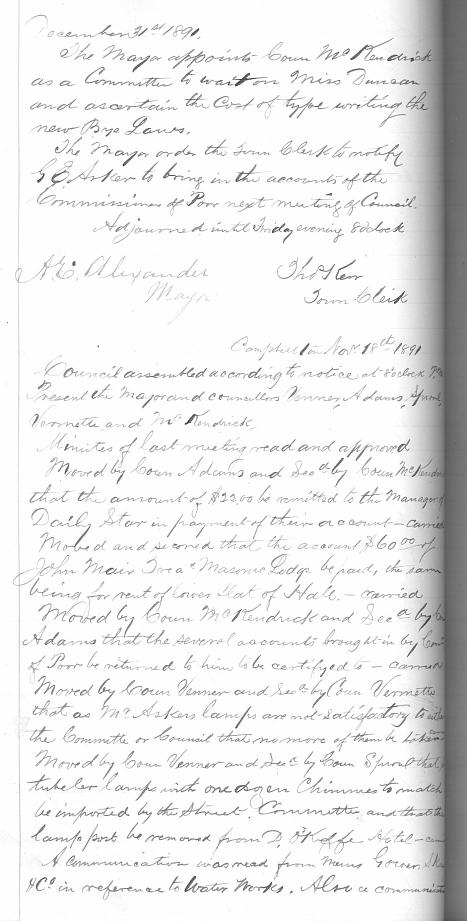 December 31st 1891.
The Mayor appoints Coun McKendrick
as a Committee to wait on Miss Duncan
and ascertain the cost of type writing the
new Bye Laws.
The Mayor order the Town Clerk to notify
G E Asker to bring in the accounts of the
Commissioner of Poor next meeting of Council.
Adjourned until Friday evening 8 oclock
A. E. Alexander
Mayor
Thos Kerr
Town Clerk
Campbellton Novr 18th 1891
Council assembled according to notice at 8 oclock P.M
Present the Mayor and councillors Venner, Adams, Sproul,
Vermette and McKendrick,
Minites of last meeting read and approved
Moved by Coun Adams and Secd by Coun McKendri
that the amount of $22.00 be remitted to the Manager of
Daily Star in payment of their account - carried
Moved and seconed that the account $60.00 of
John Mair Trear Masonic Lodge be paid, the same
being for rent of lower flat of Hall. - carried
Moved by Coun McKendrick and Secd by
Adams that the several accounts brought in by
of Poor be returned to him to be certified to - carried
Moved by Coun Venner and Secd by Coun Vermette
that as Mr Askers lamps are not satisfactory to
the Committe or Council that no more of them be taken
Moved by Coun Venner and Secd by Coun Sproul that
tubeler lamps with one dozen Chimnes to match
be imported by the Street Committe and that the
lamp post be removed from D. O'Keffe Hotel -
A communication was read from Messrs
& Co in reference to Water Works. Also a communicati